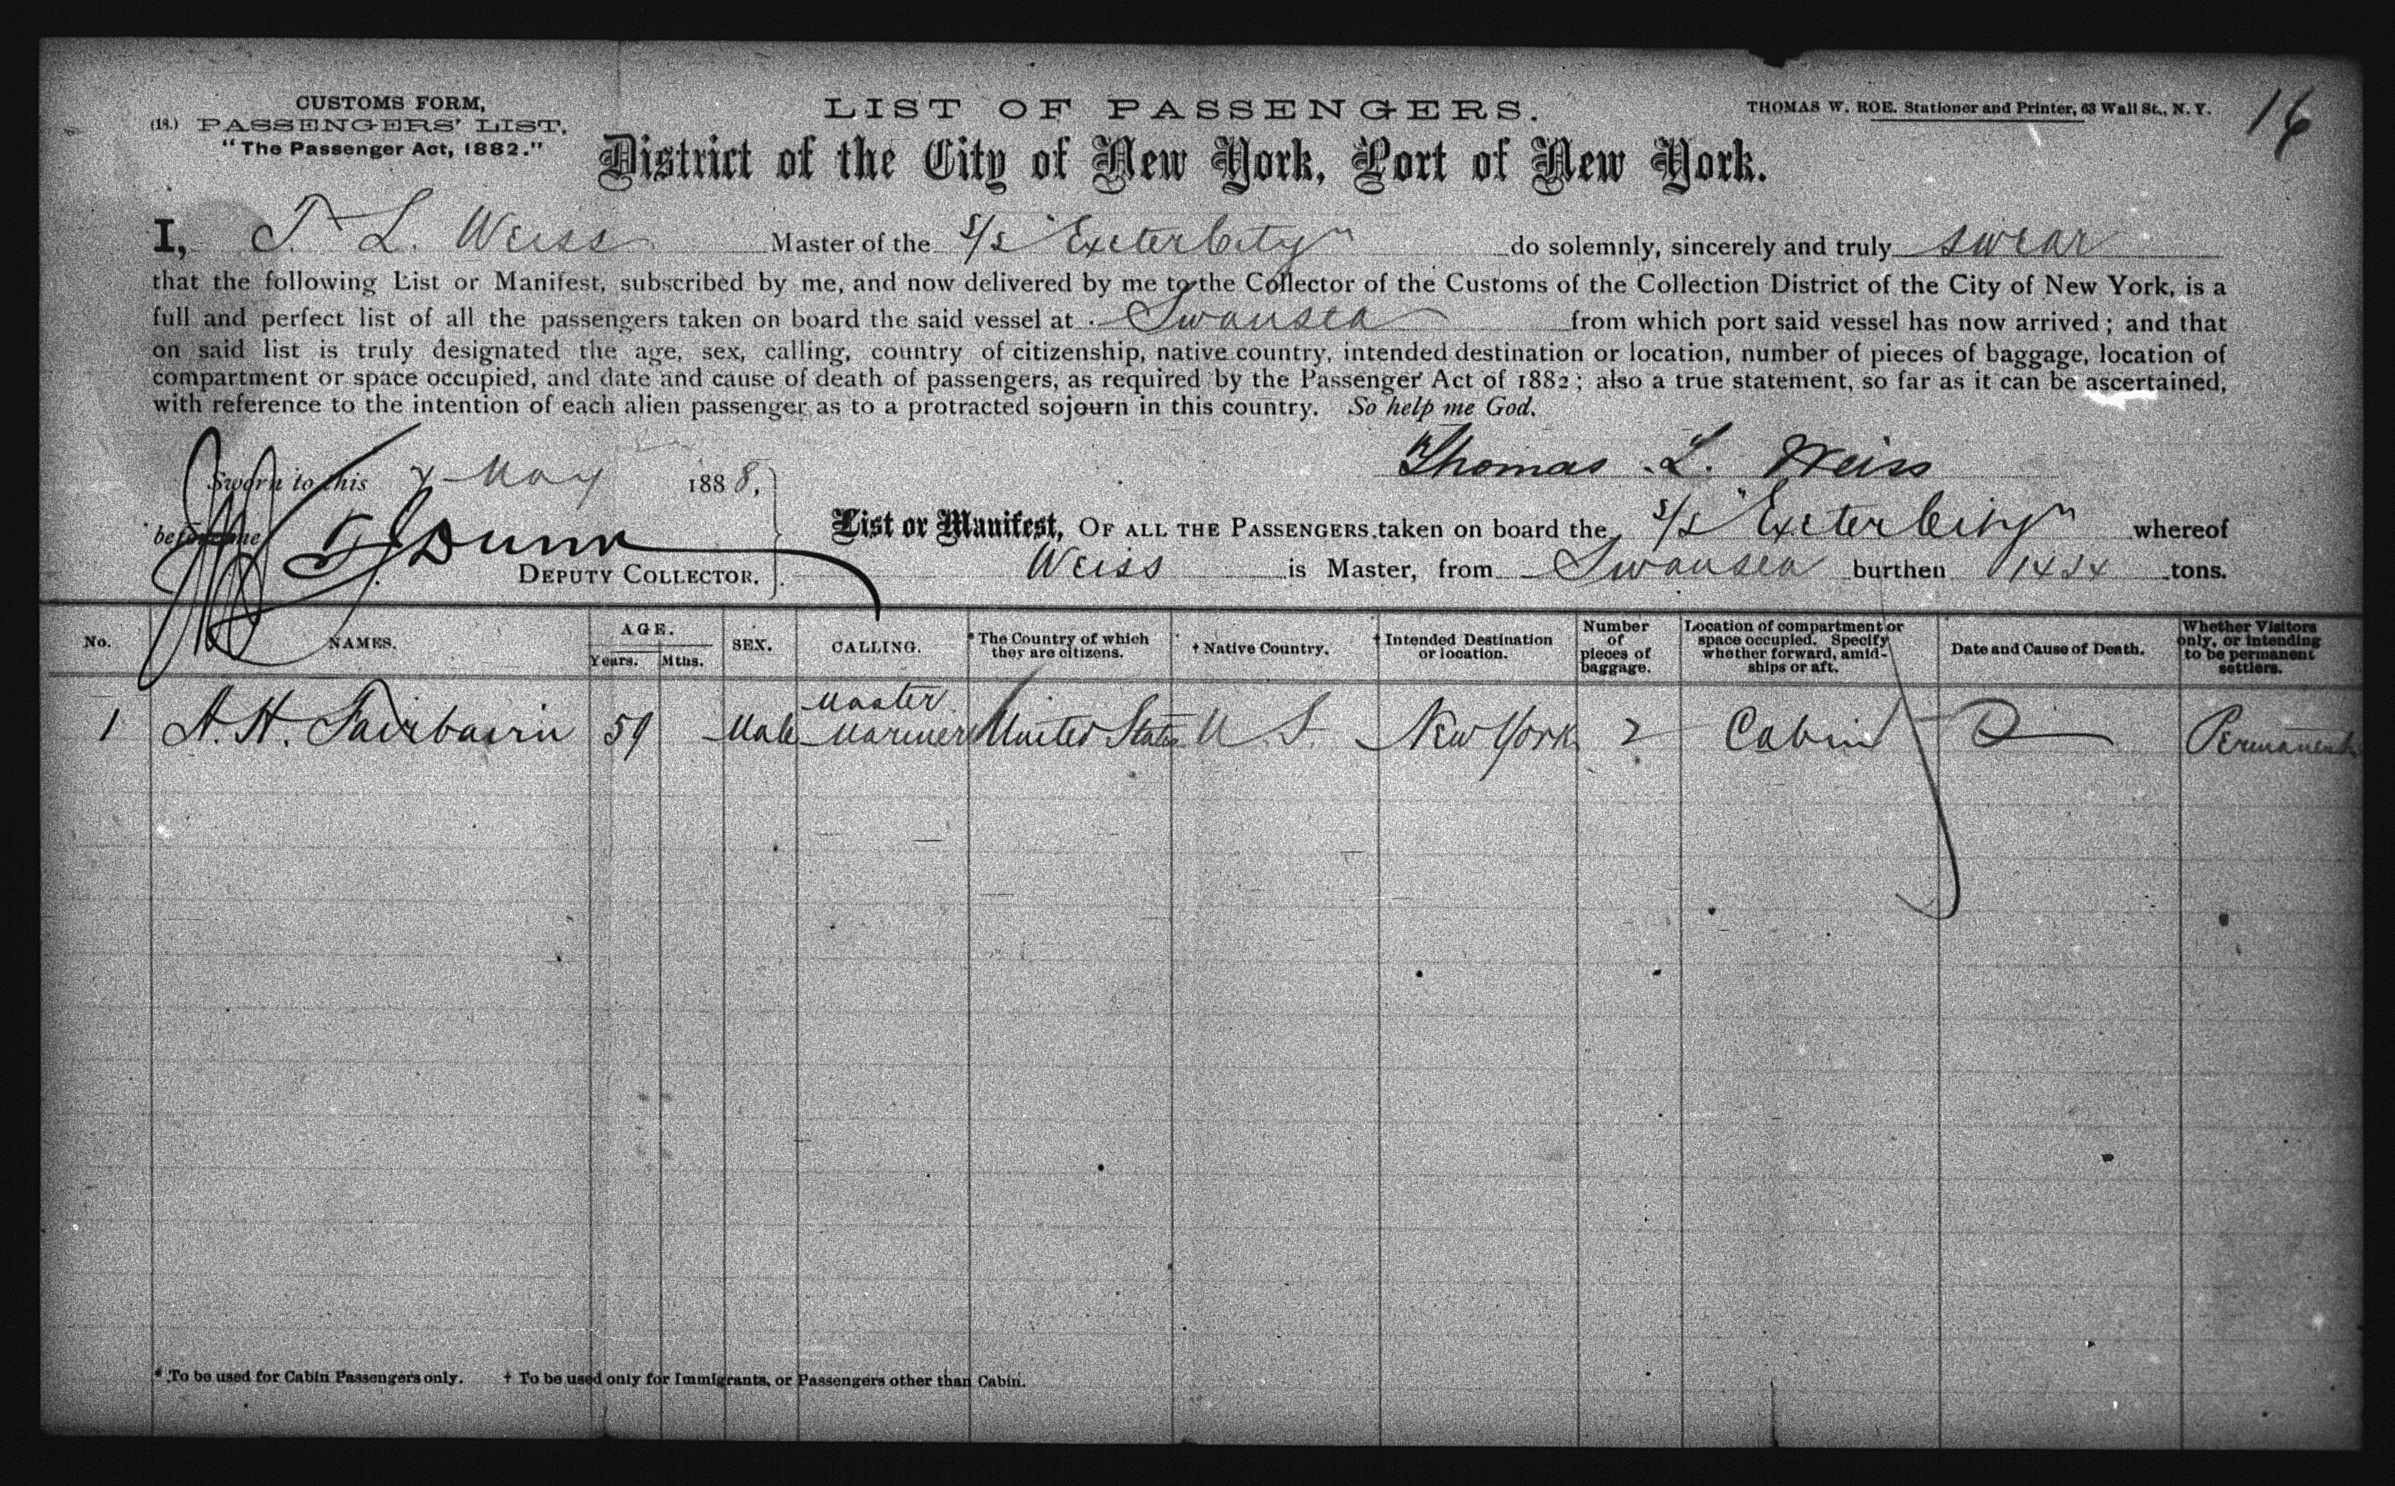 CUSTOMS FORM,
(18.) PASSENGERS' LIST.
"The Passenger Act, 1882."
LIST OF PASSENGERS.
THOMAS W. ROE. Stationer and Printer, 63 Wall St., N. Y.
16
District of the City of New York, Port of New York.
I, T. L. Weiss Master of the S/S "Exeter City" do solemnly, sincerely and truly swear
that the following List or Manifest, subscribed by me, and now delivered by me to the Collector of the Customs of the Collection District of the City of New York, is a
full and perfect list of all the passengers taken on board the said vessel at Swansea from which port said vessel has now arrived; and that
on said list is truly designated the age, sex, calling, country of citizenship, native country, intended destination or location, number of pieces of baggage, location of
compartment or space occupied, and date and cause of death of passengers, as required by the Passenger Act of 1882; also a true statement, so far as it can be ascertained,
with reference to the intention of each alien passenger as to a protracted sojourn in this country. So help me God.
Thomas L. Weiss
Sworn to this 7 May 1888,
before me Dunn
DEPUTY COLLECTOR.
List or Manifest, OF ALL THE PASSENGERS taken on board the S/S "Exeter City" whereof
Weiss is Master, from Swansea burthen tons.
No. NAMES. AGE. Years. Mths. SEX. CALLING. * The Country of which they are citizens. † Native Country. † Intended Destination or location. Number of pieces of baggage. Location of compartment or space occupied. Specify whether forward, amid-ships or aft. Date and Cause of Death. Whether Visitors only, or intending to be permanent settlers.
1 A. H. Fairbairn 59 Male Master Mariner United States U. S. New York 2 Cabin Permanent
* To be used for Cabin Passengers only. † To be used only for Immigrants, or Passengers other than Cabin.